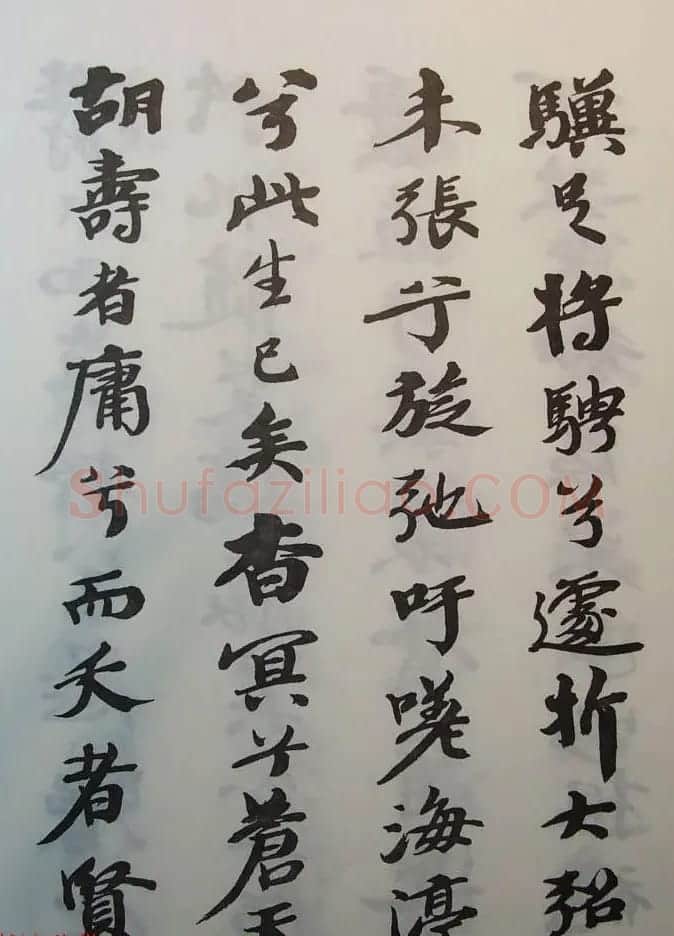 驥足将騁兮遽折大弨
未張兮旋弛吁嗟海
兮此生已矣杳冥兮蒼天
胡壽者庸兮而夭者賢
Shufaziliao.COM